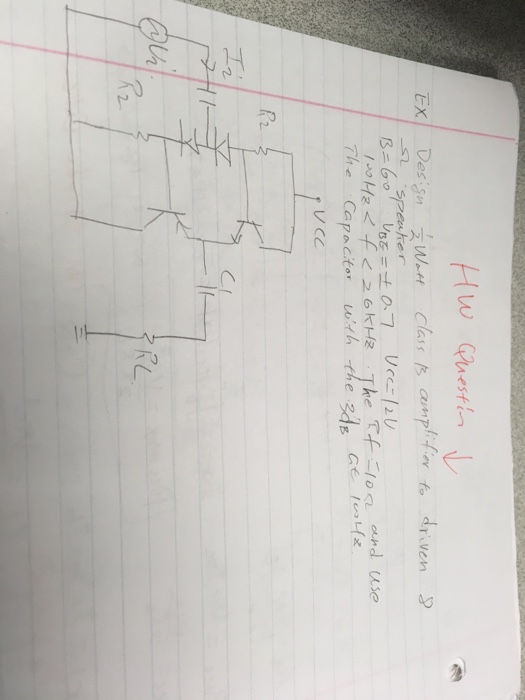 HW Question ↓
EX. Design 1/2 Watt class B amplifier to driven 8
Ω speaker
B=60 VBE=±0.7 Vcc=12V
100Hz < f < 20KHz. The rf=10Ω and use
The Capacitor with the 3dB at 100Hz
.VCC
R2
C1
RL
R2
Vi